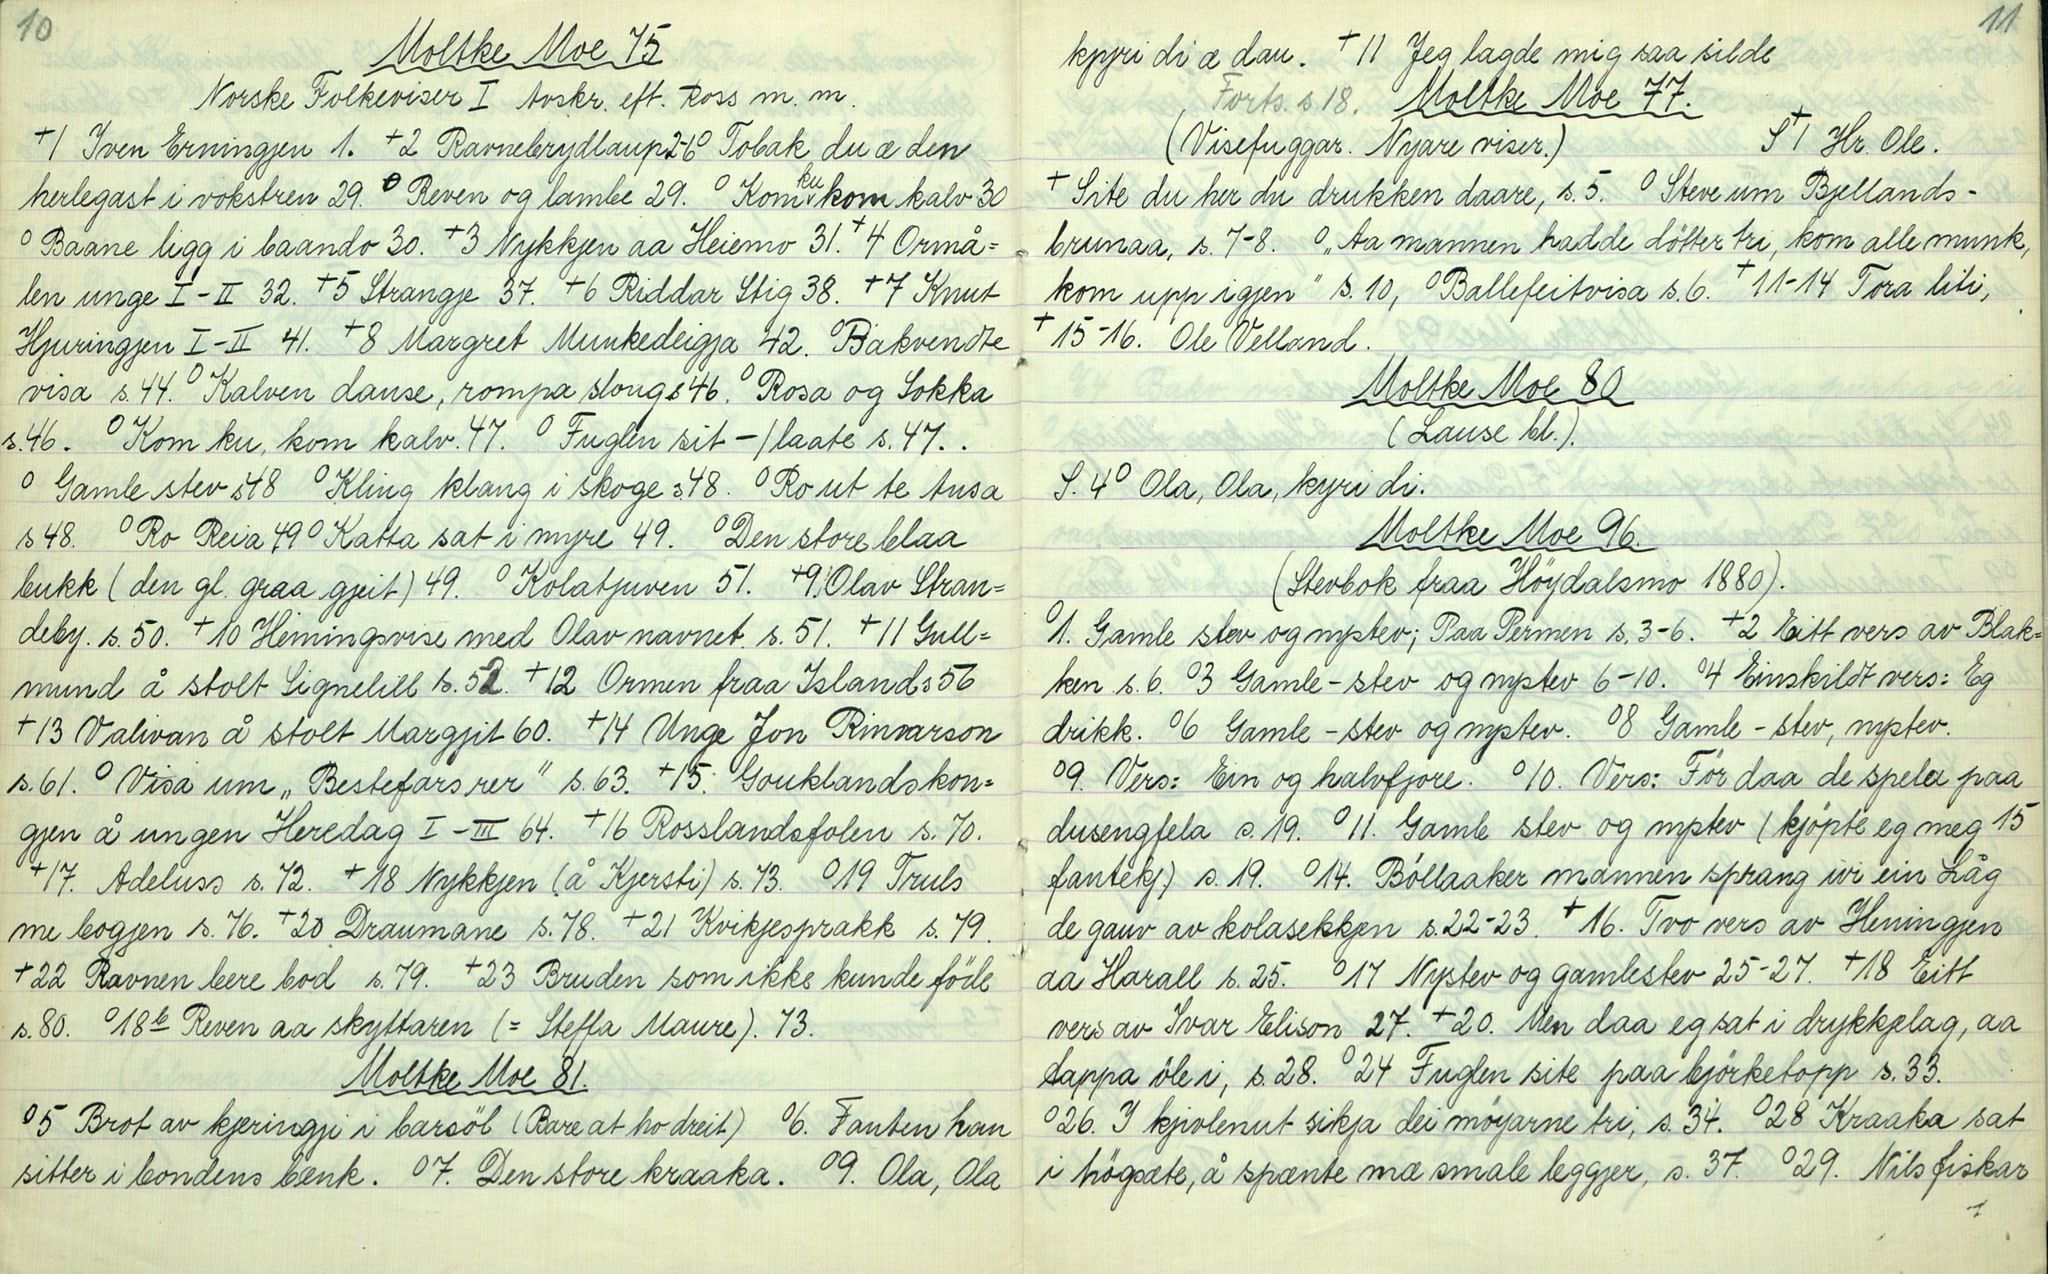 10
Moltke Moe 75
Norske Folkeviser I Avskr. eft. Ross m. m.
+1 Iven Erningjen 1. +2 Ravnebrydlaup 2-6 o Tobak du æ den
herlegast i vokstren 29. o Reven og lambe 29. o Kom ku kom kalv 30
o Baane ligg i baando 30. +3 Nykkjen aa Heiemo 31. +4 Ormå=
len unge I-II 32. +5 Strangje 37. +6 Riddar Stig 38. +7 Knut
Hjuringjen I-II 41. +8 Margret Munkedeigja 42. o Bakvendte
visa s. 44. o Kalven danse, rompa slong s 46. o Rosa og Lokka
s. 46. o Kom ku, kom kalv. 47. o Fuglen sit - / laate s. 47..
o Gamle stev s48 o Kling klang i skoge s. 48. o Ro ut te Ausa
s 48. o Ro Reia 49 o Katta sat i myre 49. o Den store blaa
bukk (den gl. graa gjeit) 49. o Kolatjuven 51. +9. Olav Stran=
deby. s. 50. +10 Hemingsvise med Olav navnet. s. 51. +11 Gull=
mund å stolt Signelill s. 52. +12 Ormen fraa Island s 56
+13 Valivan å stolt Margjit 60. +14 Unge Jon Rimarson
s. 61. o Visa um "Bestefars rer" s. 63. +15. Gouklandskon=
gjen å ungen Heredag I-III 64. +16 Rosslandsfolen s. 70.
+17. Adeluss s. 72. +18 Nykkjen (å Kjersti) s. 73. o19 Truls
me bogjen s. 76. +20 Draumane s. 78. +21 Kvikjesprakk s. 79.
+22 Ravnen bere bod s. 79. +23 Bruden som ikke kunde föde
s. 80. o18b Reven aa skyttaren (= Steffa Maure). 73.
Moltke Moe 81.
o5 Brot av kjeringji i barsöl (Bare at ho dreit) o6. Fanten han
sitter i bondens bænk. o7. Den store kraaka. o9. Ola, Ola
11
kjyri di æ dau. +11 Jeg lagde mig saa silde
Forts. s. 18. Moltke Moe 77.
(Visefuggar. Nyare viser.) S +1 Hr. Ole.
+ Site du her du drukken daare, s. 5. o Steve um Bjellands-
brunaa, s. 7-8. o "Aa mannen hadde dötter tri, kom alle munk,
kom upp igjen" s. 10, o Ballefeitvisa s. 6. +11-14 Tora liti,
+15-16. Ole Velland.
Moltke Moe 80
(Lause bl.).
S. 4 o Ola, Ola, kyri di.
Moltke Moe 96.
(Stevbok fraa Höydalsmo 1880).
o1. Gamle stev og nystev; Paa Permen s. 3-6. +2 Eitt vers av Blak=
ken s. 6. o3 Gamle-stev og nystev 6-10. o4 Einskildt vers: Eg
drikk. o6 Gamle-stev og nystev. o8 Gamle-stev, nystev.
o9. Vers: Ein og halvfjore. o10. Vers: För daa de spela paa
dusengfela s. 19. o11. Gamle stev og nystev (kjöpte eg meg 15
fantekj.) s. 19. o14. Böllaaker mannen sprang ivi ein Låg
de gauv av kolasekkjen s. 22-23. +16. Tvo vers av Hemingjen
aa Harall s. 25. o17 Nystev og gamlestev 25-27. +18 Eitt
vers av Ivar Elison 27. +20. Men daa eg sat i drykkjelag, aa
tappa öle i, s. 28. o24 Fuglen site paa björketopp s. 33.
o26. I kjolenut sikja dei möyarne tri, s. 34. o28 Kraaka sat
i högsæte, å spænte mæ smale leggjer, s. 37. o29. Nils fiskar